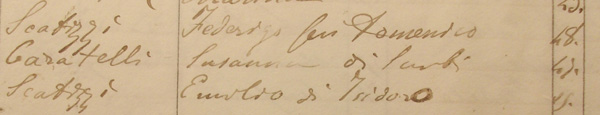 Scatizzi Federigo fu Domenico 48.
Casatelli Susanna di Santi
Scatizzi Emilio di Isidoro